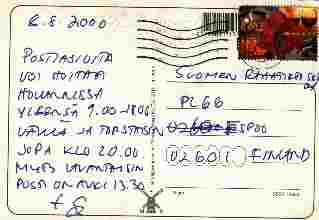 2.8.2000
POSTIASIOITA
VOI HOITAA
HOLLANNISSA
YLEENSÄ 9.00-18.00
JA TORSTAISIN
JOPA KLO 20.00
MYÖS LAUANTAISIN
POSTI ON AUKI 13.30
SUOMEN
PL 66
ESPOO
02601 FINLAND